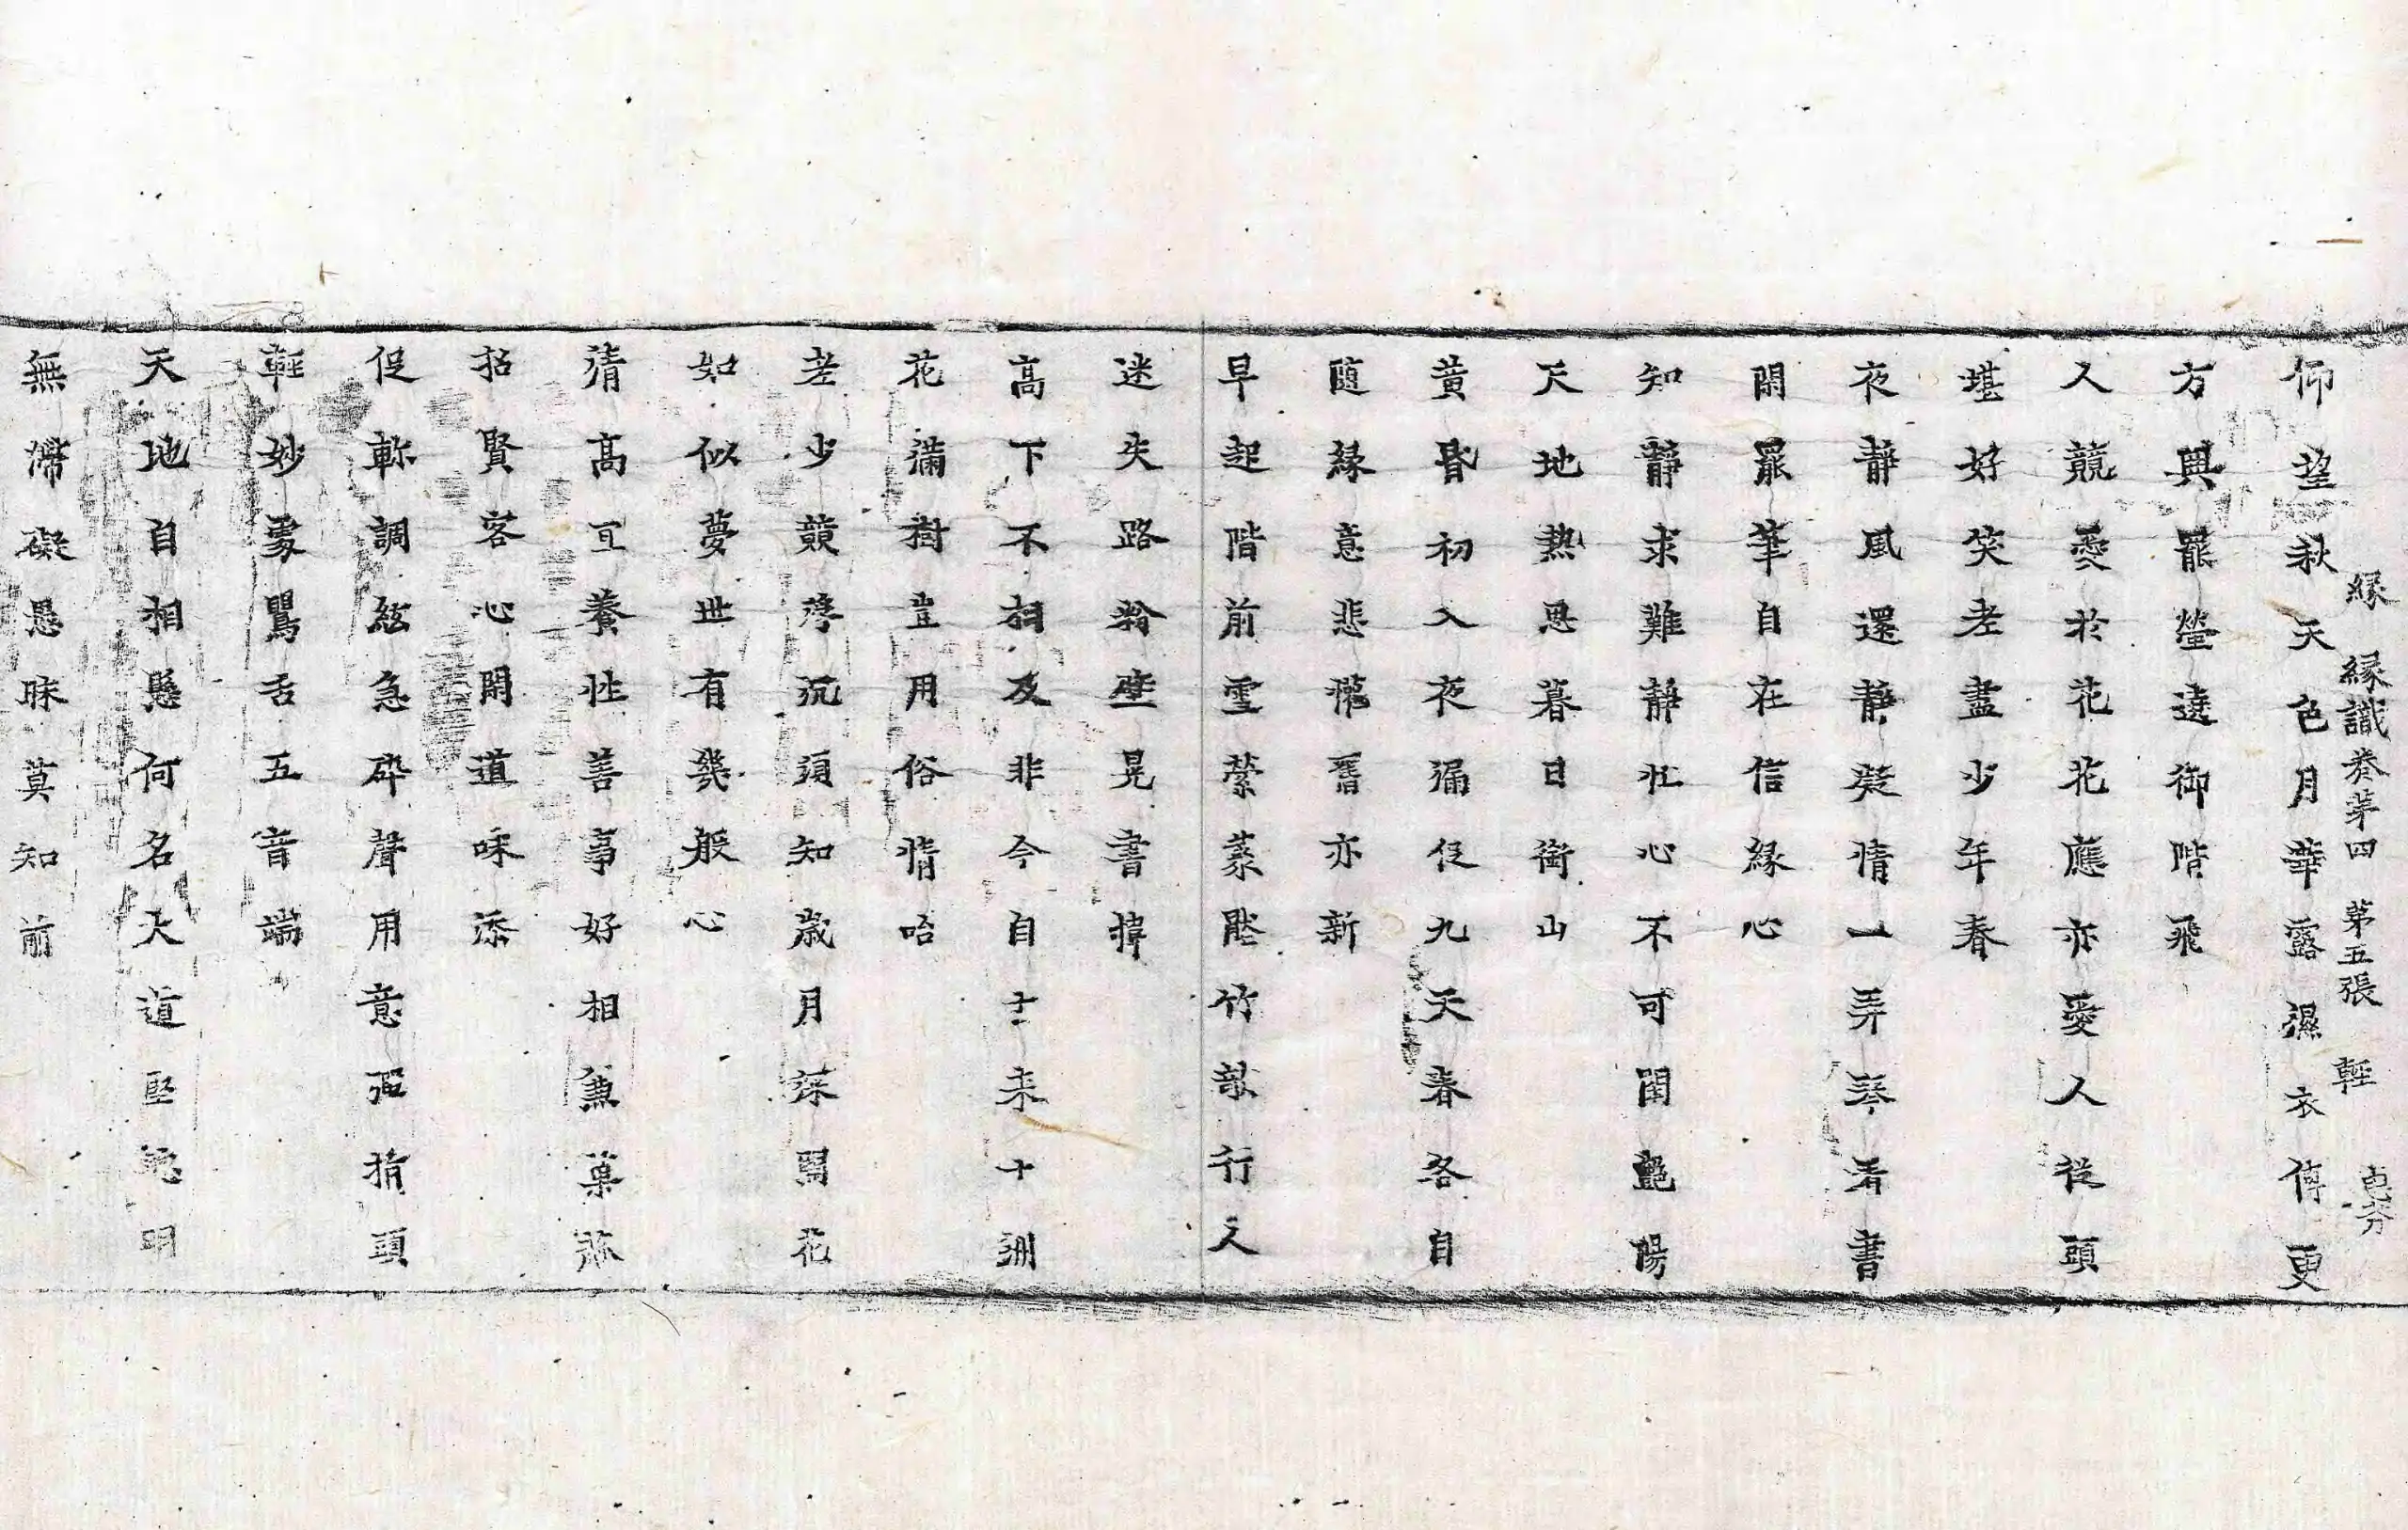 緣 緣識卷苐四 苐五張 輕
仰望秋天色月華露濕衣傳更
方興罷螢遶御階飛
人競愛於花花應亦愛人從頭
堪好笑老盡少年春
夜靜風還靜凝情一弄琴看書
閑罷筆自在信緣心
知靜求難靜壯心不可閑豔陽
天地熱思暮日銜山
黃昏初入夜漏促九天春各自
隨緣意悲懽舊亦新
早起階前雪縈蒙壓竹欹行人
迷失路粉壁晃書幃
高下不相及非今自古來十洲
花滿樹豈用俗情咍
老少競浮沉須知歲月深開花
如似夢世有幾般心
清高宜養性善事好相兼菓蔬
招賢客心閑道味添
促軫調絃急碎聲用意彈指頭
輕妙處鸎舌五音端
天地自相懸何名大道堅 明
無滯礙愚昧莫知前